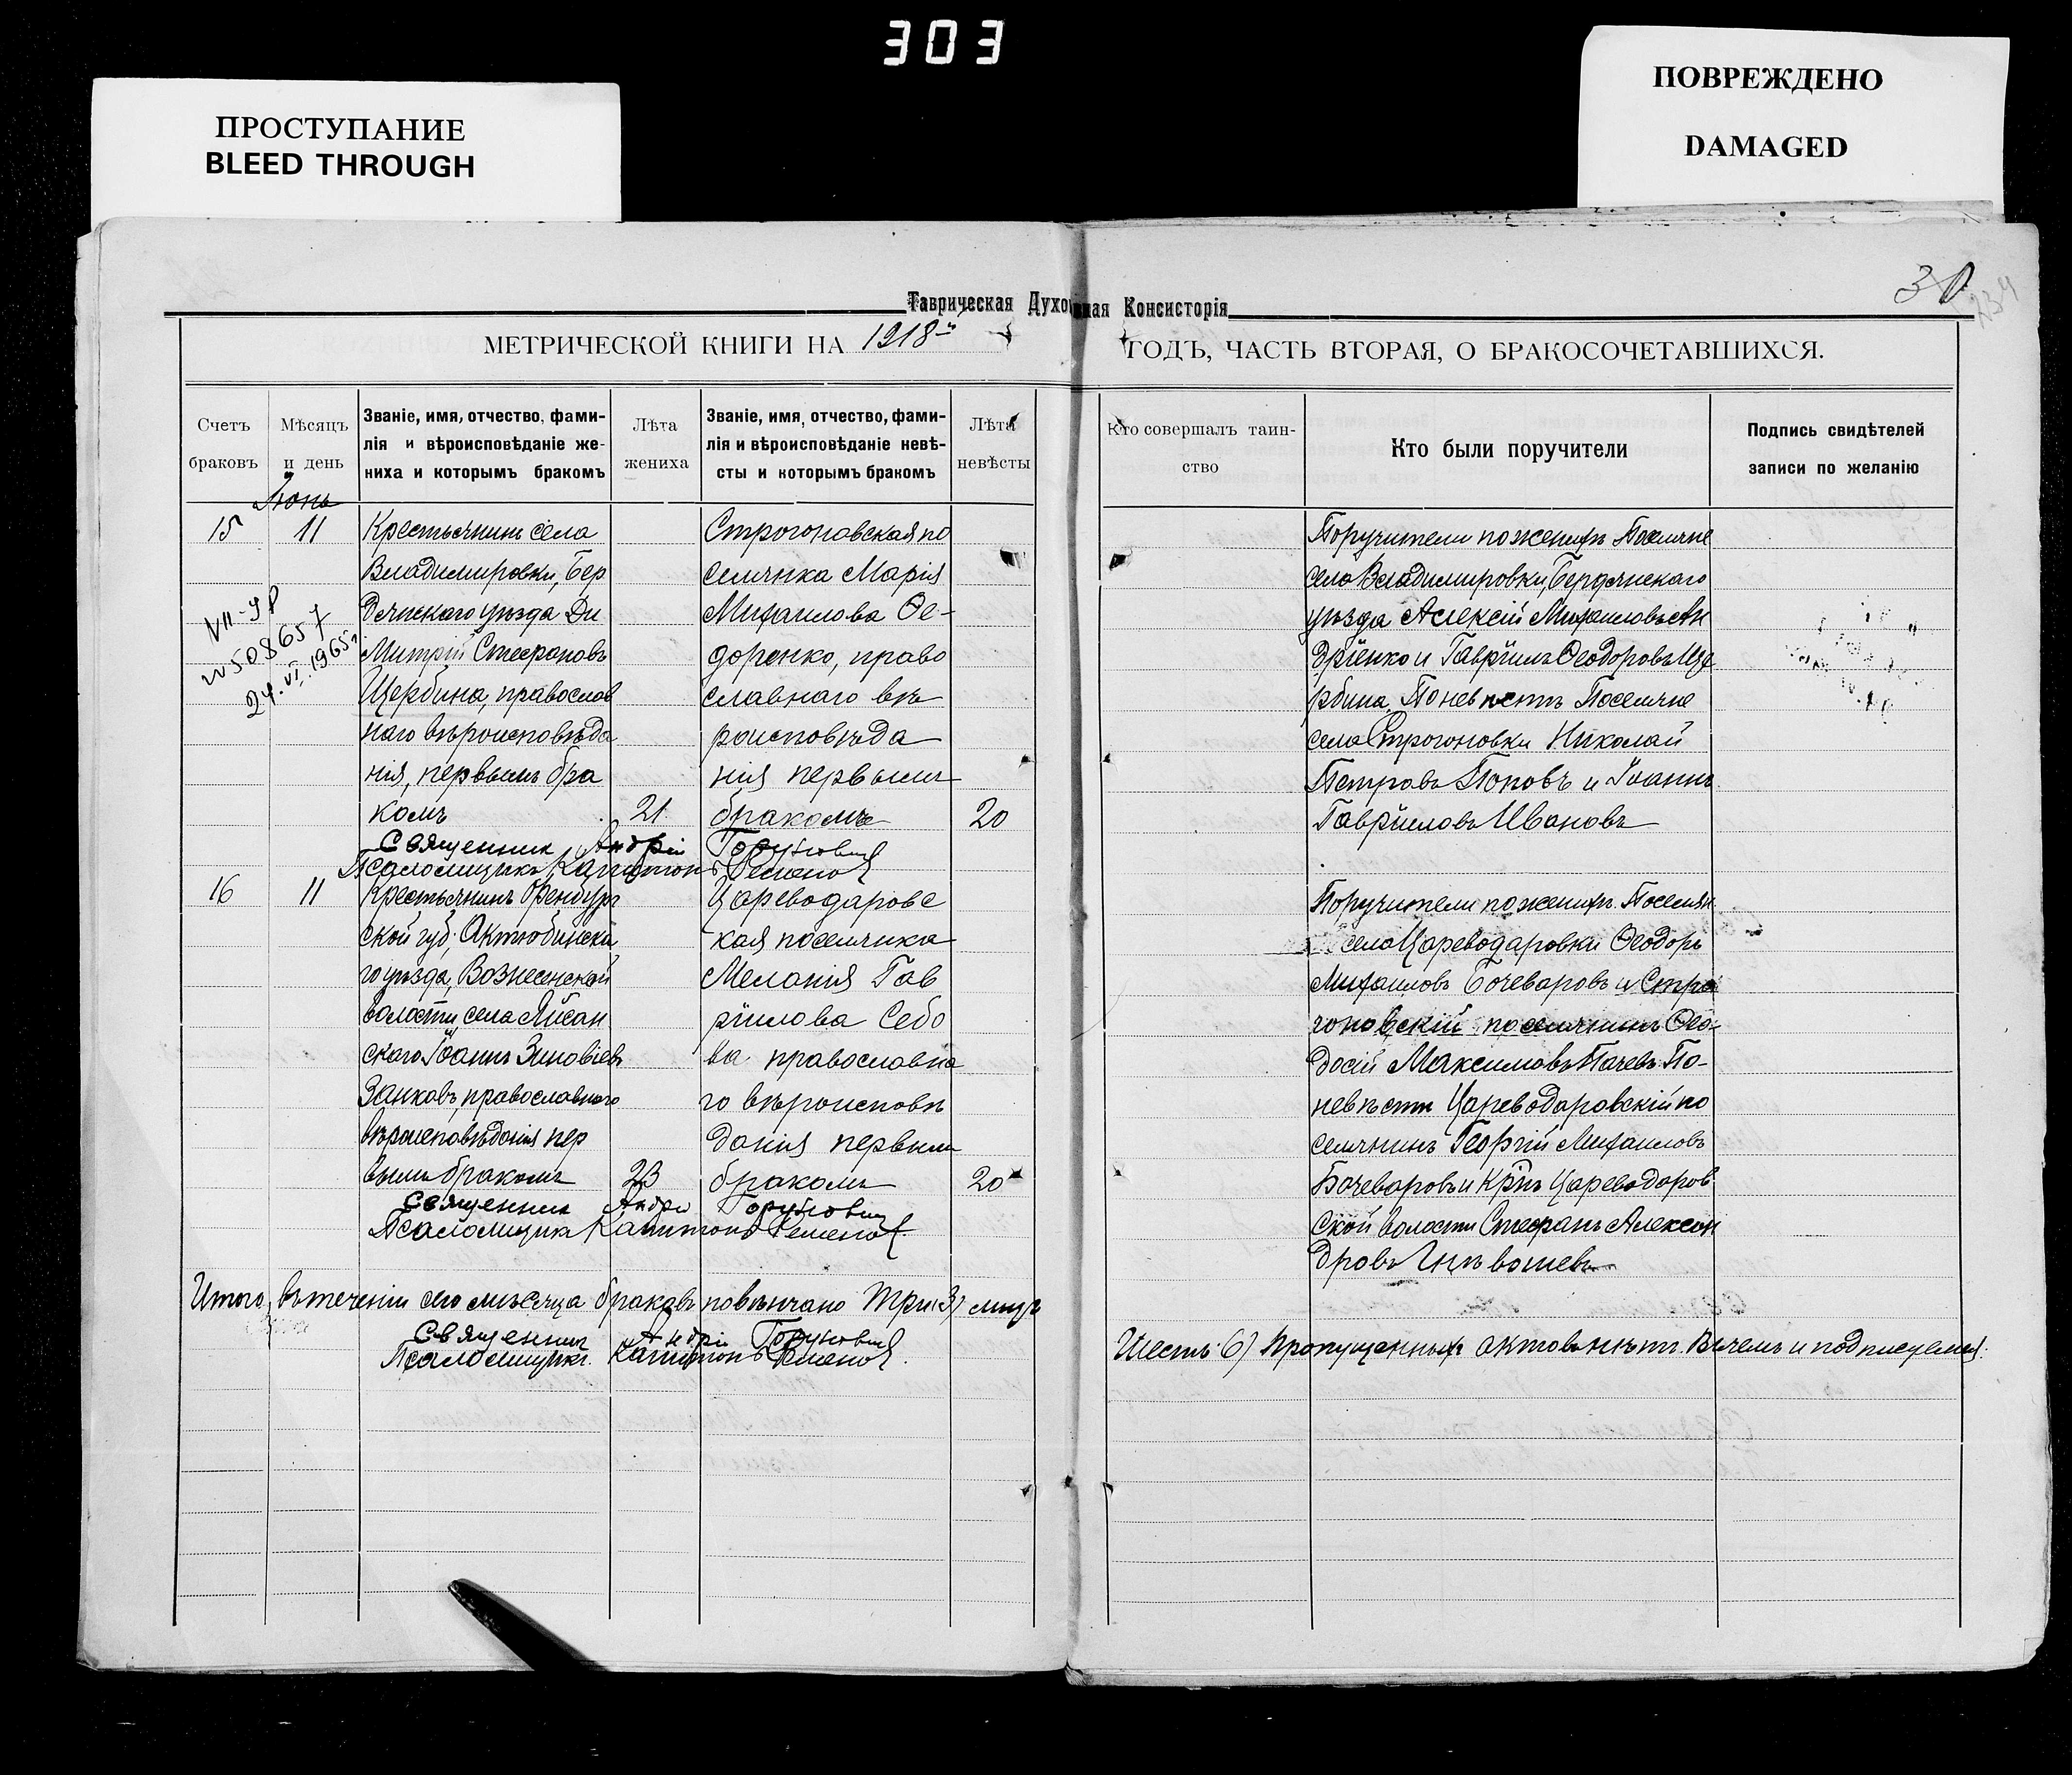 303
ПРОСТУПАНИЕ
BLEED THROUGH
ПОВРЕЖДЕНО
DAMAGED
30
234
Таврическая Духовная Консисторія
МЕТРИЧЕСКОЙ КНИГИ НА 1918-й
ГОДЪ, ЧАСТЬ ВТОРАЯ, О БРАКОСОЧЕТАВШИХСЯ.
Счетъ браковъ
Мѣсяцъ и день
Званіе, имя, отчество, фами-
лія и вѣроисповѣданіе же-
ниха и которымъ бракомъ
Лѣта жениха
Званіе, имя, отчество, фами-
лія и вѣроисповѣданіе невѣ-
сты и которымъ бракомъ
Лѣта невѣсты
Кто совершалъ таин-
ство
Кто были поручители
Подпись свидѣтелей
записи по желанію
Іюнь
15
11
VII-ЯР
№508657
24.VI.1965г.
Крестьянинъ села
Владимировки, Бер
дянскаго уѣзда Ди
митрій Стефановъ
Щербина, православ
наго вѣроисповѣда
нія, первымъ бра
комъ
21
Строгоновская по
селянка Марія
Михаилова Ѳе-
доренко, право
славнаго вѣ
роисповѣда
нія первымъ
бракомъ
20
Поручители по женихѣ Поселяне
села Владимировки, Бердянскаго
уѣзда Алексій Михаиловъ Ан
дріенко и Гавріилъ Ѳеодоровъ Ще
рбина. По невѣстѣ Поселяне
села Строгоновки Николай
Петровъ Поповъ и Іоаннъ
Гавріиловъ Ивановъ
Священник Андрій
Псаломщикъ Капитонъ
16
11
Крестьянинъ Оренбург
ской губ. Актюбинска
го уѣзда, Вознесенской
волости, села
скаго Іоаннъ Зиновіевъ
Занковъ, православнаго
вѣроисповѣданія пер
вымъ бракомъ
23
Цареводаровс
кая поселянка
Меланія Гав
ріилова Себо
ва православна
го вѣроисповѣ
данія первымъ
бракомъ
20
Поручители по женихѣ. Поселян
села Цареводаровки Ѳеодоръ
Михаиловъ Бочеваровъ и Стро
гоновскій поселянинъ Ѳео-
досій Максимовъ Пачевъ. По-
невѣстѣ Цареводаровскій по
селянинъ Георгій Михаиловъ
Бочеваровъ и Крнъ Цареводаров
ской волости Стефанъ Алексан
дровъ
Священник Андрій
Псаломщикъ Капитонъ
Итого, въ теченіи сего мѣсяца браковъ повѣнчано три (3) лицъ
Шесть (6) Пропущенныхъ актовъ нѣтъ. Въ чемъ и подписуемся:
Священник Андрій
Псаломщикъ. Капитонъ